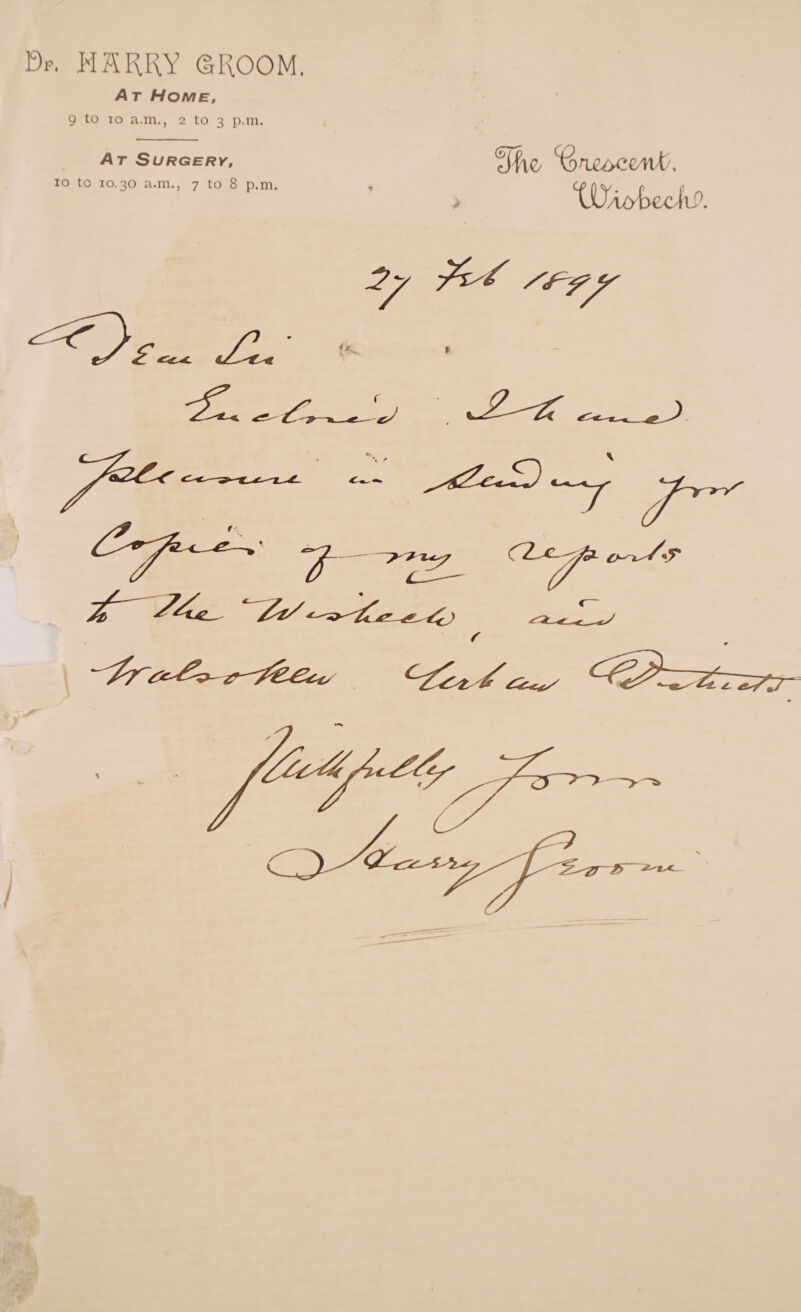 Dr. HARRY GROOM.
AT HOME,
9 to 10 a.m., 2 to 3 p.m.
AT SURGERY,
10 to 10.30 a.m., 7 to 8 p.m.
The Crescent,
Wisbech.
27 Feb 1897
Dear Sir
Enclosed I have
pleasure in sending you
Copies of my reports
to the Wisbech, and
Walsoken Urban Districts.
Faithfully Yours
Harry Groom